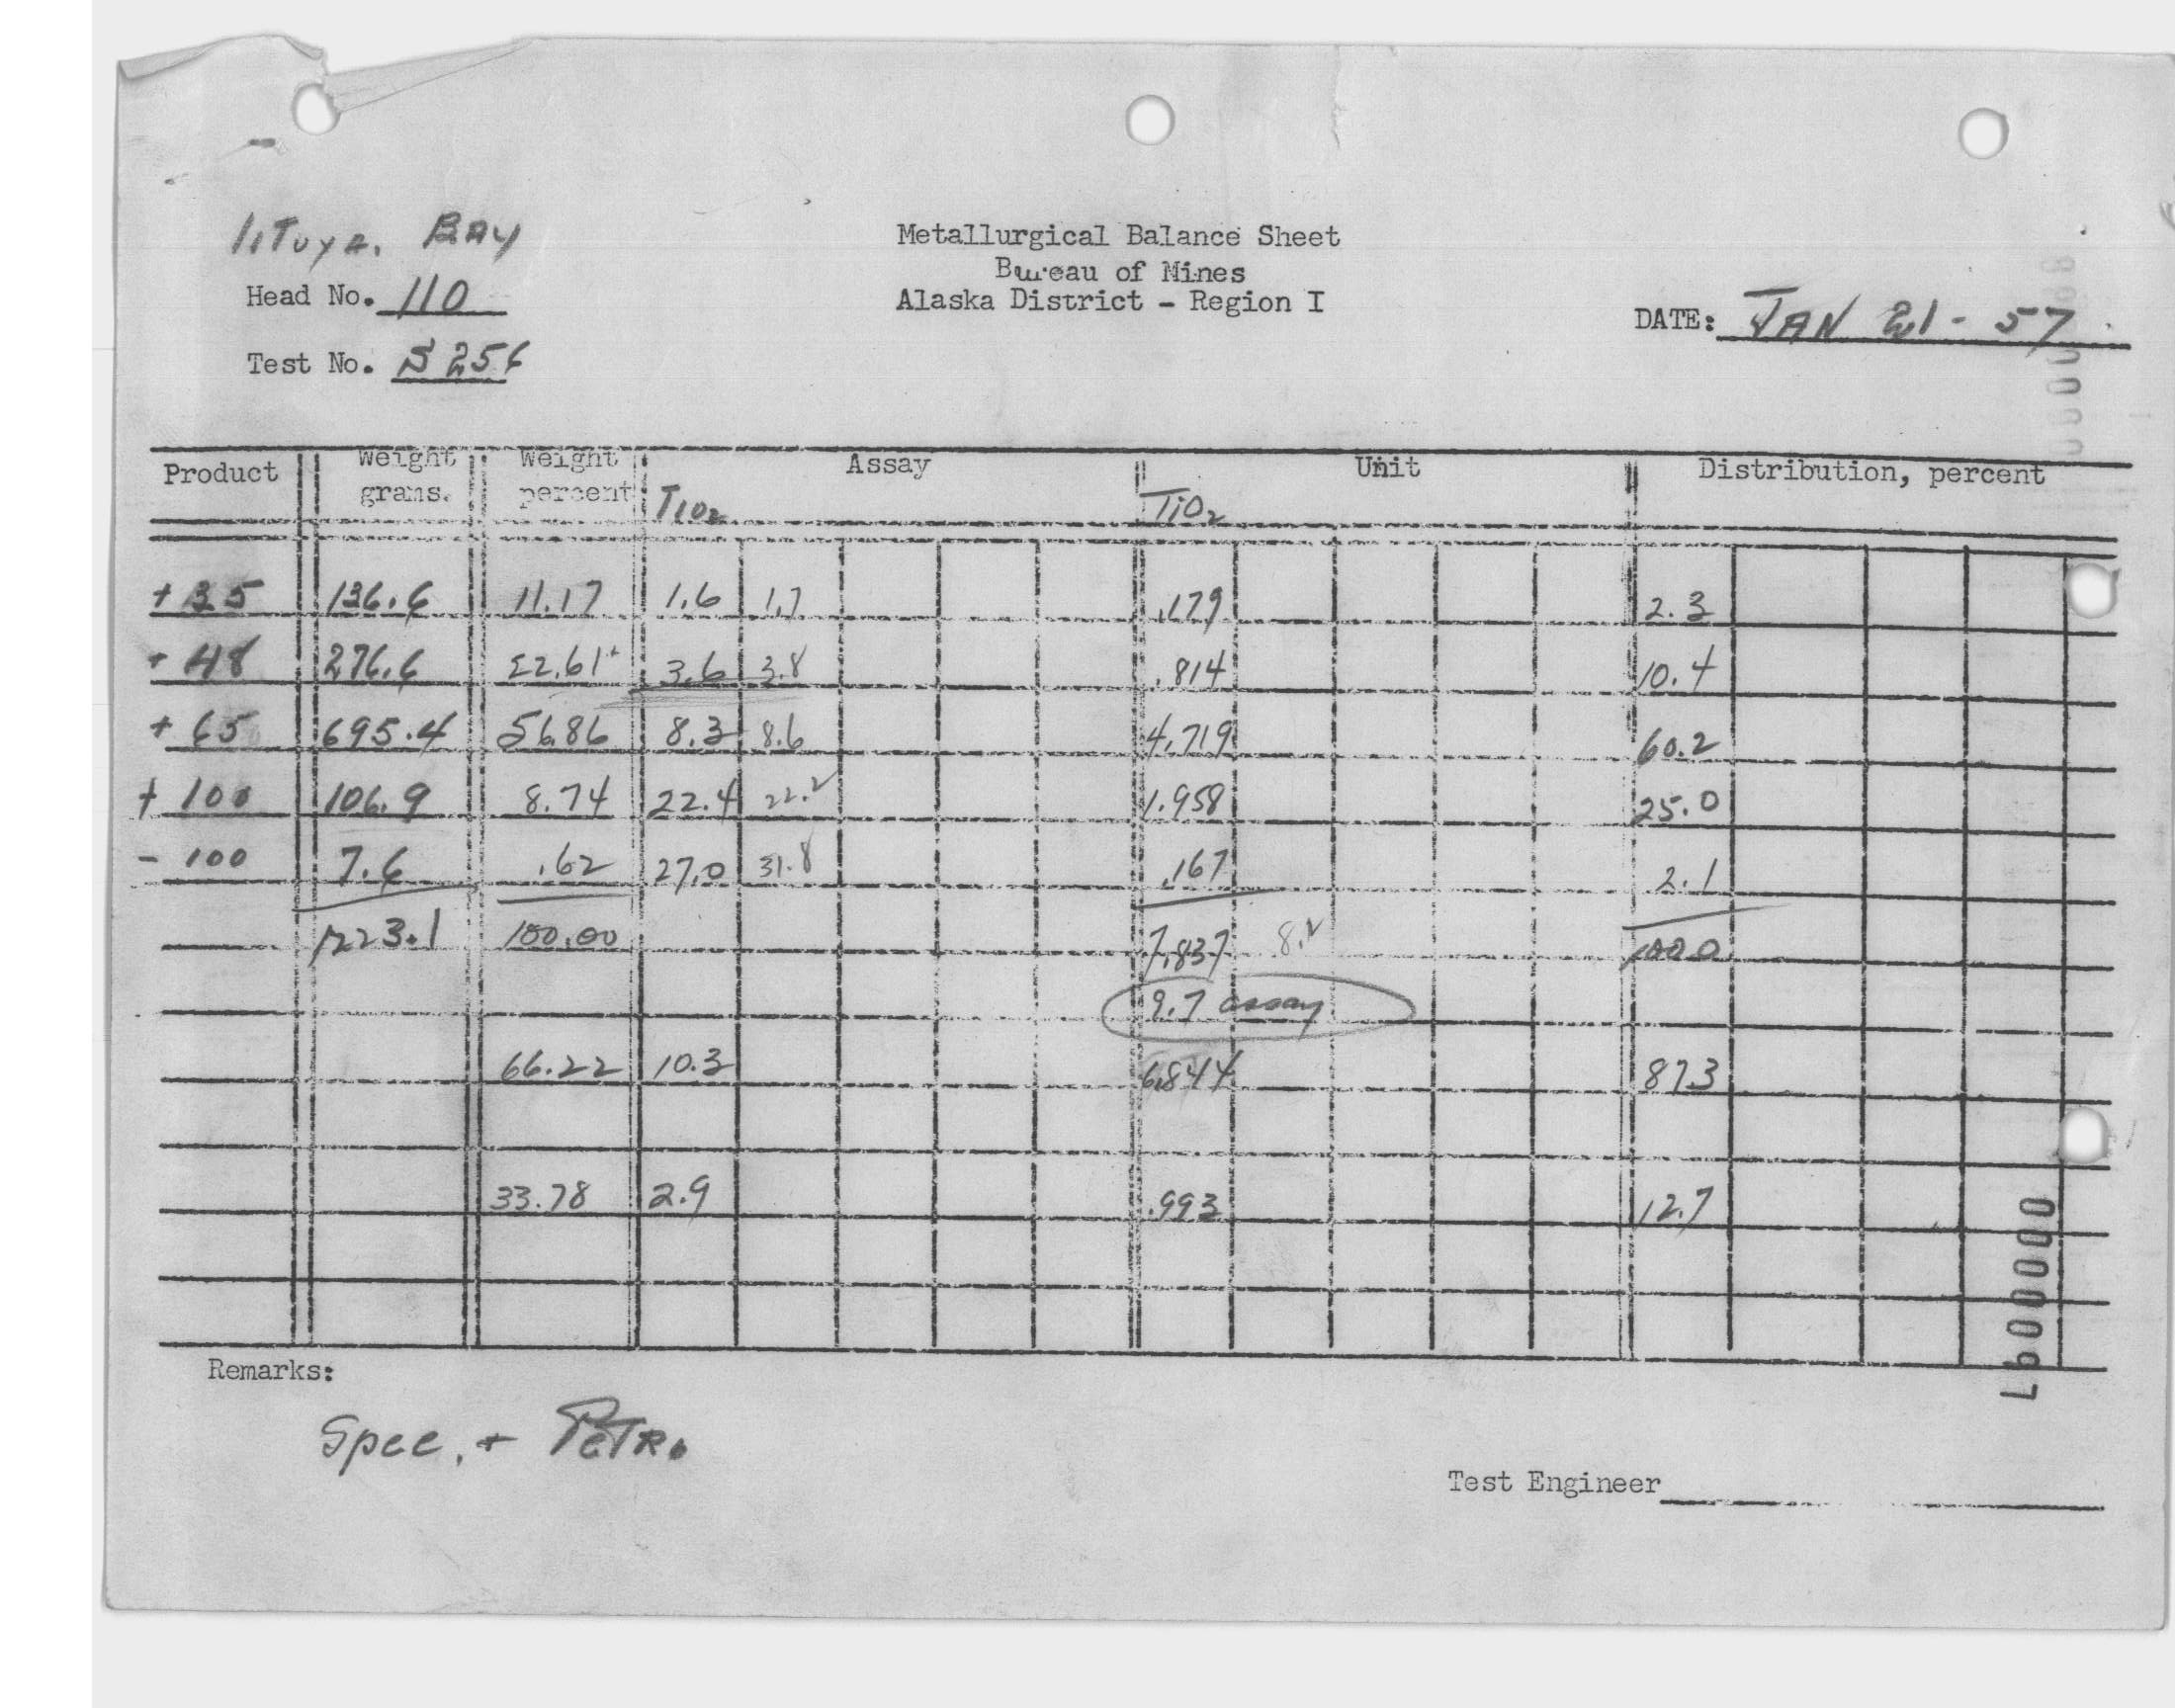 Lituya. Bay
Metallurgical Balance Sheet
Bureau of Mines
Alaska District - Region I
Head No. 110
DATE: JAN 21 - 57
Test No. S 256
Product Weight grams. Weight percent Assay Unit Distribution, percent
TiO2 TiO2
+ 35 136.6 11.17 1.6 1.7 .179 2.3
+ 48 276.6 22.61+ 3.6 3.8 .814 10.4
+ 65 695.4 56.86 8.3 8.6 4.719 60.2
+ 100 106.9 8.74 22.4 22.2 1.958 25.0
- 100 7.6 .62 27.0 31.8 .167 2.1
1223.1 100.00 7.837 8.2 100.0
9.7 assay
66.22 10.3 6.844 87.3
33.78 2.9 .993 12.7
Remarks:
Spec. + Petro
Test Engineer
L600000